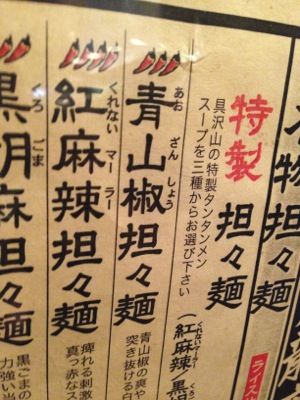 特製 担々麺
具沢山の特製タンタンメン
スープを三種からお選び下さい
(紅麻辣
くれないマーラー
青山椒担々麺
あお ざん しょう
青山椒の爽や
突き抜ける白
紅麻辣担々麺
くれない マー ラー
痺れる刺激
真っ赤なス
黒胡麻担々麺
くろ ごま
黒ごまの
力強い当